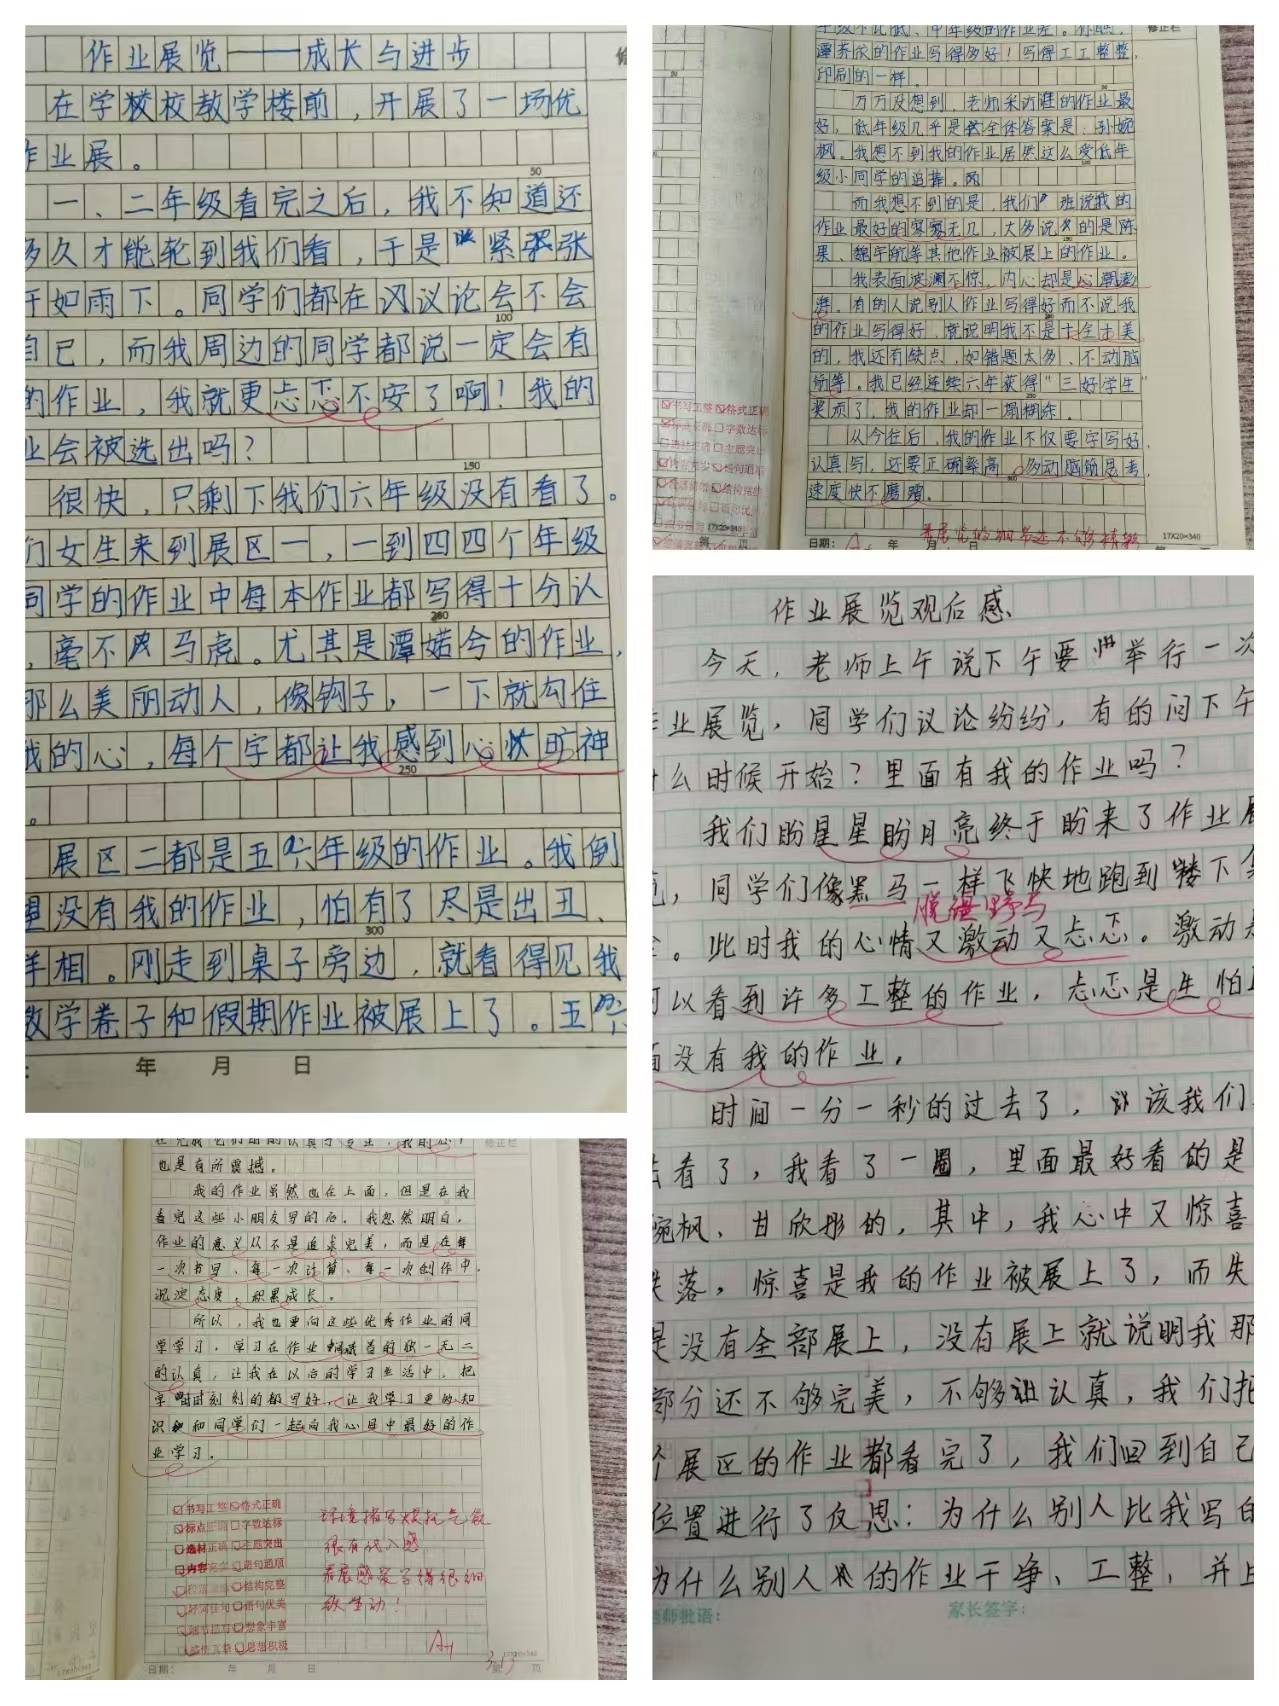 作业展览——成长与进步
在学校教学楼前，开展了一场优
作业展。
50
一、二年级看完之后，我不知道还
多久才能轮到我们看，于是紧张
汗如雨下。同学们都在议论会不会
100
自己，而我周边的同学都说一定会有
的作业，我就更忐忑不安了啊！我的
业会被选出吗？
150
很快，只剩下我们六年级没有看了。
们女生来到展区一，一到四四个年级
同学的作业中每本作业都写得十分认
200
，毫不马虎。尤其是潭婼兮的作业，
那么美丽动人，像钩子，一下就勾住
我的心，每个字都让我感到心旷神
250
。
展区二都是五六年级的作业。我倒
望没有我的作业，怕有了尽是出丑、
300
洋相。刚走到桌子旁边，就看得见我
数学卷子和假期作业被展上了。五六
年 月 日
修正栏
潭乔依的作业写得多好！写得工工整整，
印刷的一样。
万万没想到，老师采访谁的作业最
好，低年级几乎是全体答案是：孙婉
枫。我想不到我的作业居然这么受低年
级小同学的追捧。
而我想不到的是，我们班说我的
作业最好的寥寥无几，大多说的是陈
果、魏宇航等其他作业被展上的作业。
我表面波澜不惊，内心却是心潮澎
湃。有的人说别人作业写得好而不说我
的作业写得好，就说明我不是十全十美
的，我还有缺点，如错题太多、不动脑
筋等。我已经连续六年获得“三好学生”
奖项了，我的作业却一塌糊涂。
从今往后，我的作业不仅要字写好，
认真写，还要正确率高，多动脑筋思考，
速度快不磨蹭。
看展览的细节还不够精彩
日期： A+ 年 月 日
17X20=340
作业展览观后感
今天，老师上午说下午要举行一次
作业展览，同学们议论纷纷，有的问下午
什么时候开始？里面有我的作业吗？
我们盼星星盼月亮终于盼来了作业展
览，同学们像黑马一样飞快地跑到楼下集
脱缰野马
合。此时我的心情又激动又忐忑。激动是
可以看到许多工整的作业，忐忑是生怕里
面没有我的作业。
时间一分一秒的过去了，该我们
去看了，我看了一圈，里面最好看的是
婉枫、甘欣彤的，其中，我心中又惊喜
失落，惊喜是我的作业被展上了，而失
是没有全部展上，没有展上就说明我那
部分还不够完美，不够认真，我们把
个展区的作业都看完了，我们回到自己
位置进行了反思：为什么别人比我写的
为什么别人的作业干净、工整，并且
老师批语： 家长签字：
也是有所震撼。
我的作业虽然也在上面，但是在我
看完这些小朋友写的后，我忽然明白，
作业的意义从不是追求完美，而是在每
一次书写、每一次计算、每一次创作中，
沉淀态度，积累成长。
所以，我也要向这些优秀作业的同
学学习，学习在作业中的独一无二
的认真，让我在以后的学习生活中，把
字时时刻刻的都写好，让我学习更的知
识和同学们一起向我心目中最好的作
业学习。
书写工整 格式正确
标点正确 字数达标
选材正确 主题突出
内容充实 语句通顺
结构完整
好词佳句 语句优美
细节描写 想象丰富
感情真挚 思想积极
环境描写烘托气氛
很有代入感
看展感受写得很细
致生动！
A+
3.13
日期： 年 月 日 第 页